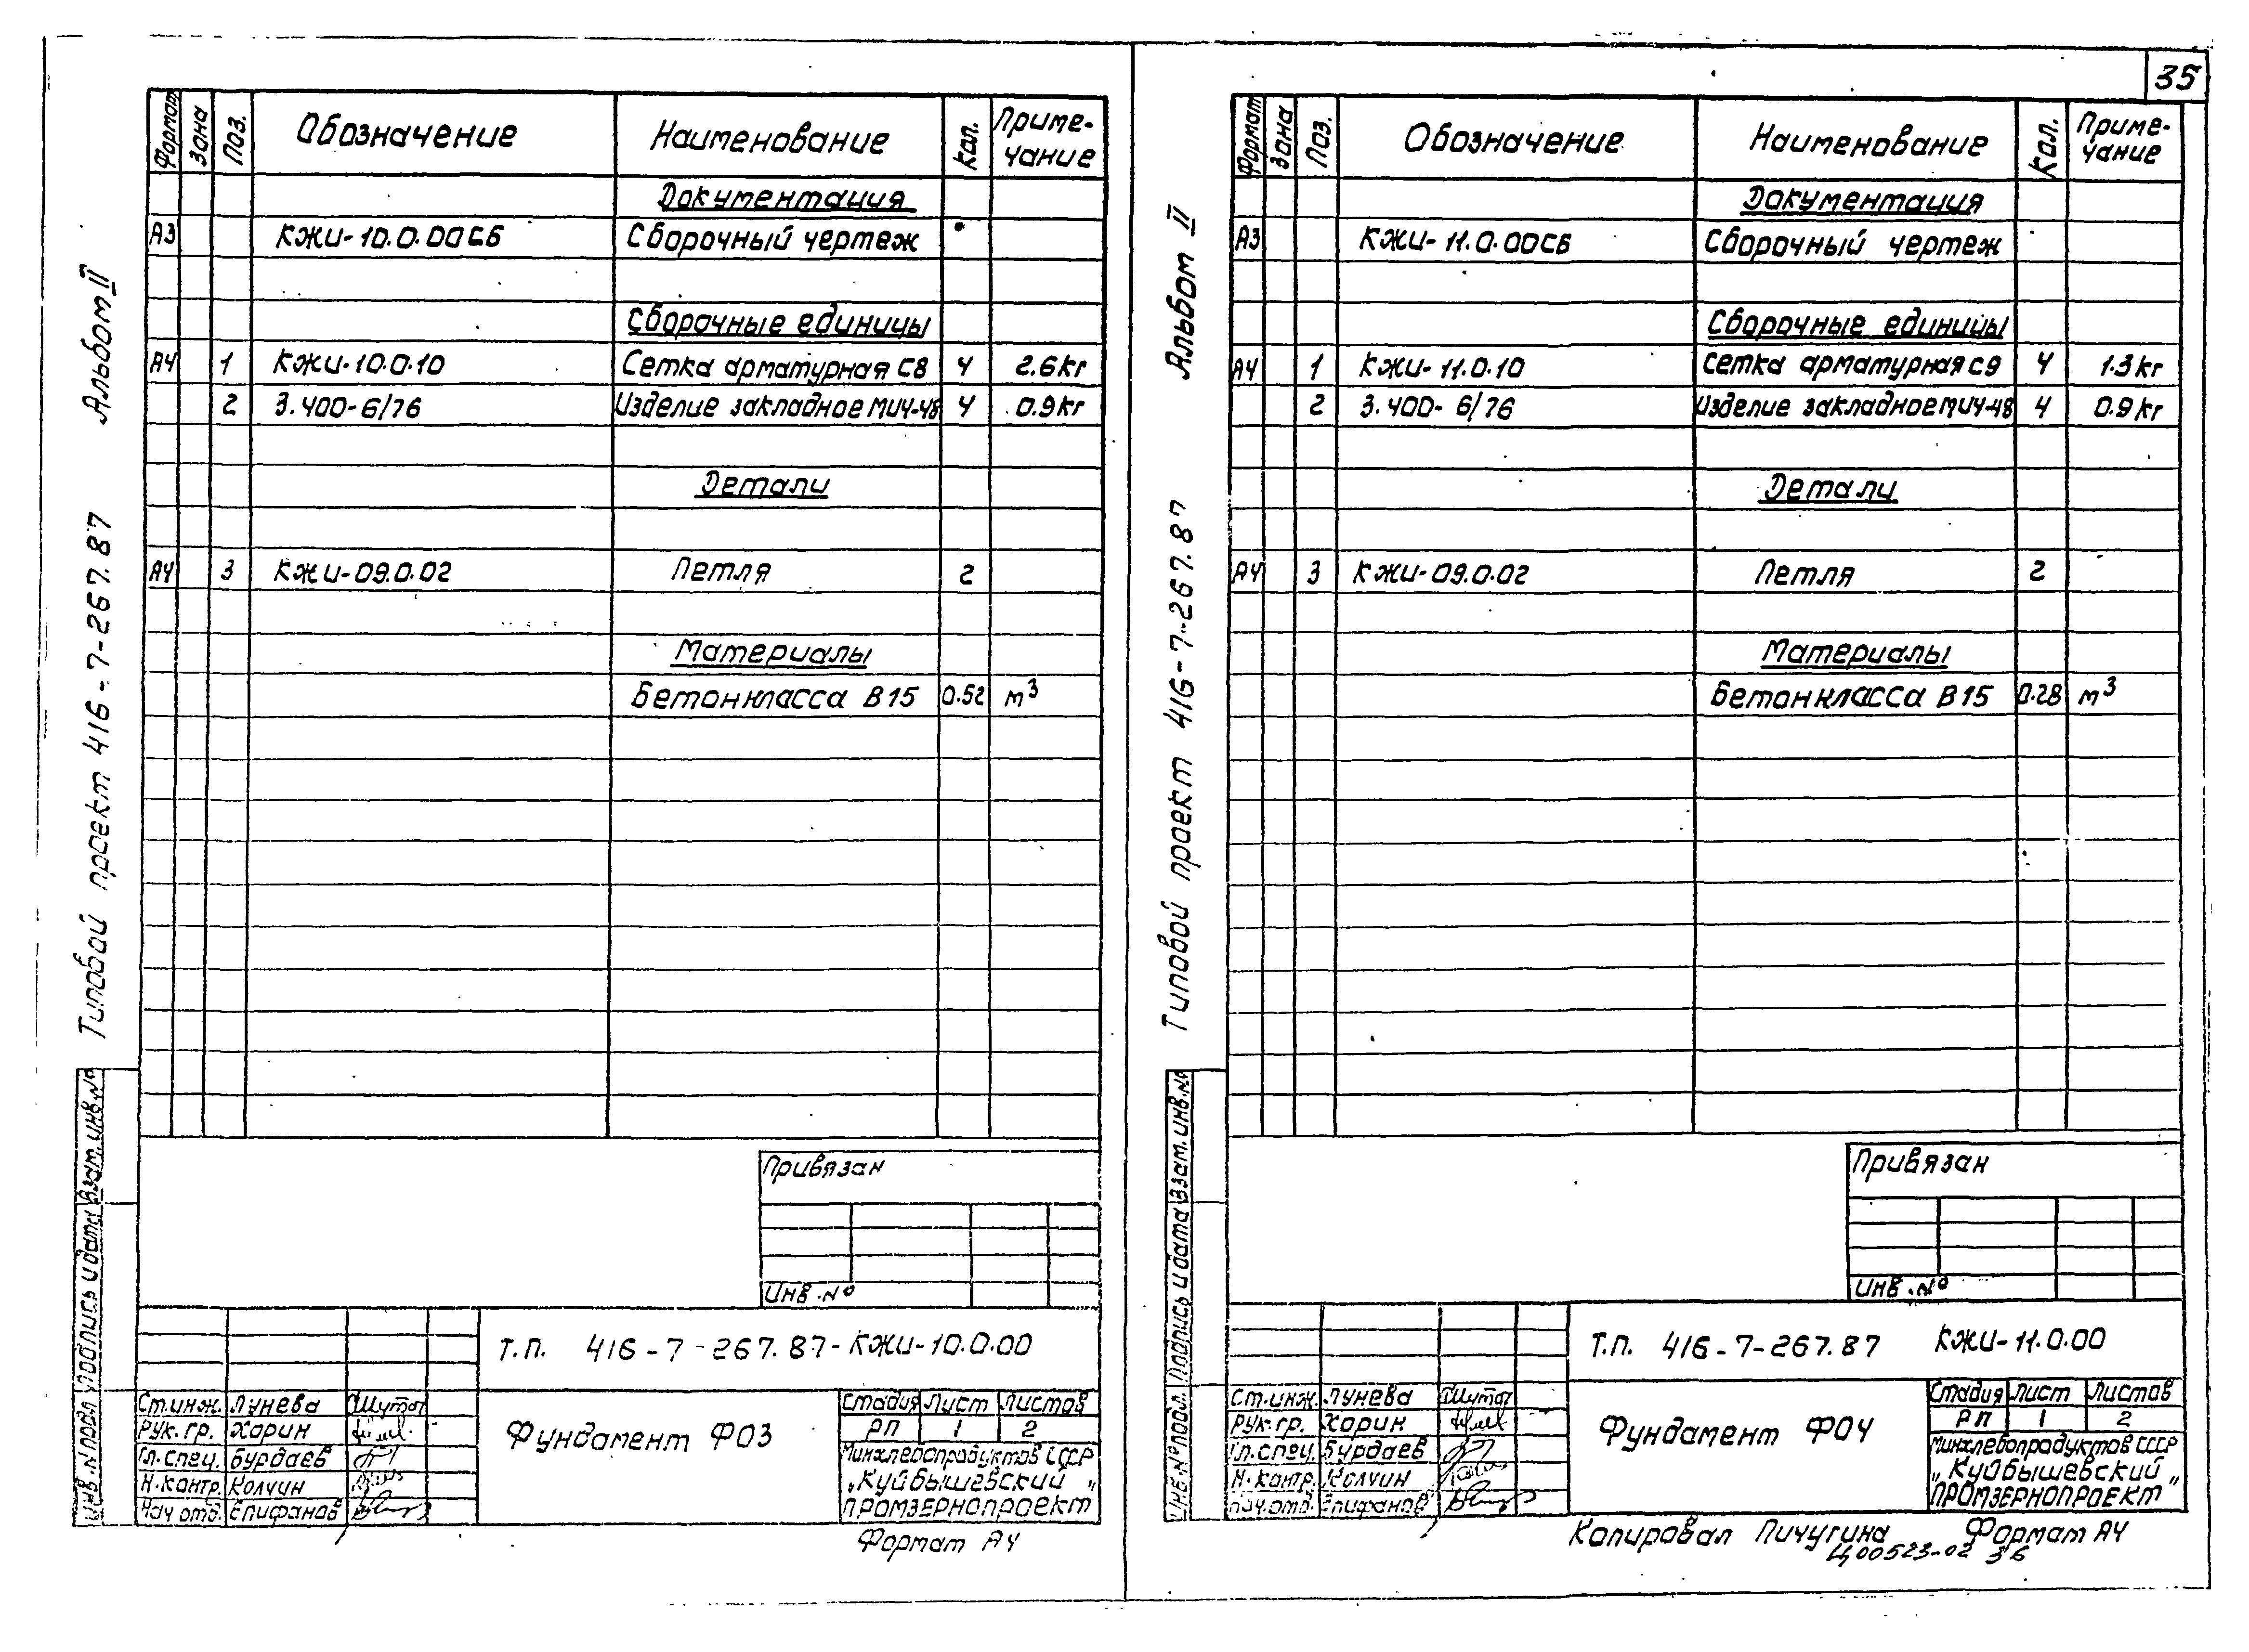 35
Альбом II
Типовой проект 416-7-267.87
Формат Зона Поз. Обозначение Наименование Кол. Приме-чание
Документация
А3 КЖИ-10.0.00СБ Сборочный чертеж
Сборочные единицы
А4 1 КЖИ-10.0.10 Сетка арматурная С8 4 2.6кг
2 3.400-6/76 Изделие закладное МИ4-48 4 0.9кг
Детали
А4 3 КЖИ-09.0.02 Петля 2
Материалы
Бетон класса В15 0.52 м³
Взам. инв. №
Подпись и дата
Инв. № подл.
Привязан
Инв. №
Т.П. 416-7-267.87-КЖИ-10.0.00
Ст.инж. Лунева
Рук. гр. Харин
Гл. спец. Бурдаев
Н. контр. Колчин
Нач отд. Епифанов
Фундамент ФО3
Стадия Лист Листов
РП 1 2
Минхлебопродуктов СССР
„Куйбышевский
ПРОМЗЕРНОПРОЕКТ"
Формат А4
Альбом II
Типовой проект 416-7-267.87
Формат Зона Поз. Обозначение Наименование Кол. Приме-чание
Документация
А3 КЖИ-11.0.00СБ Сборочный чертеж
Сборочные единицы
А4 1 КЖИ-11.0.10 Сетка арматурная С9 4 1.3кг
2 3.400-6/76 Изделие закладное МИ4-48 4 0.9кг
Детали
А4 3 КЖИ-09.0.02 Петля 2
Материалы
Бетон класса В15 0.28 м³
Взам. инв. №
Подпись и дата
Инв. № подл.
Привязан
Инв. №
Т.П. 416-7-267.87 КЖИ-11.0.00
Ст.инж. Лунева
Рук. гр. Харин
Гл. спец. Бурдаев
Н. контр. Колчин
Нач. отд. Епифанов
Фундамент ФО4
Стадия Лист Листов
РП 1 2
Минхлебопродуктов СССР
„Куйбышевский"
ПРОМЗЕРНОПРОЕКТ"
Копировал Пичугина Формат А4
Ц00523-02 36